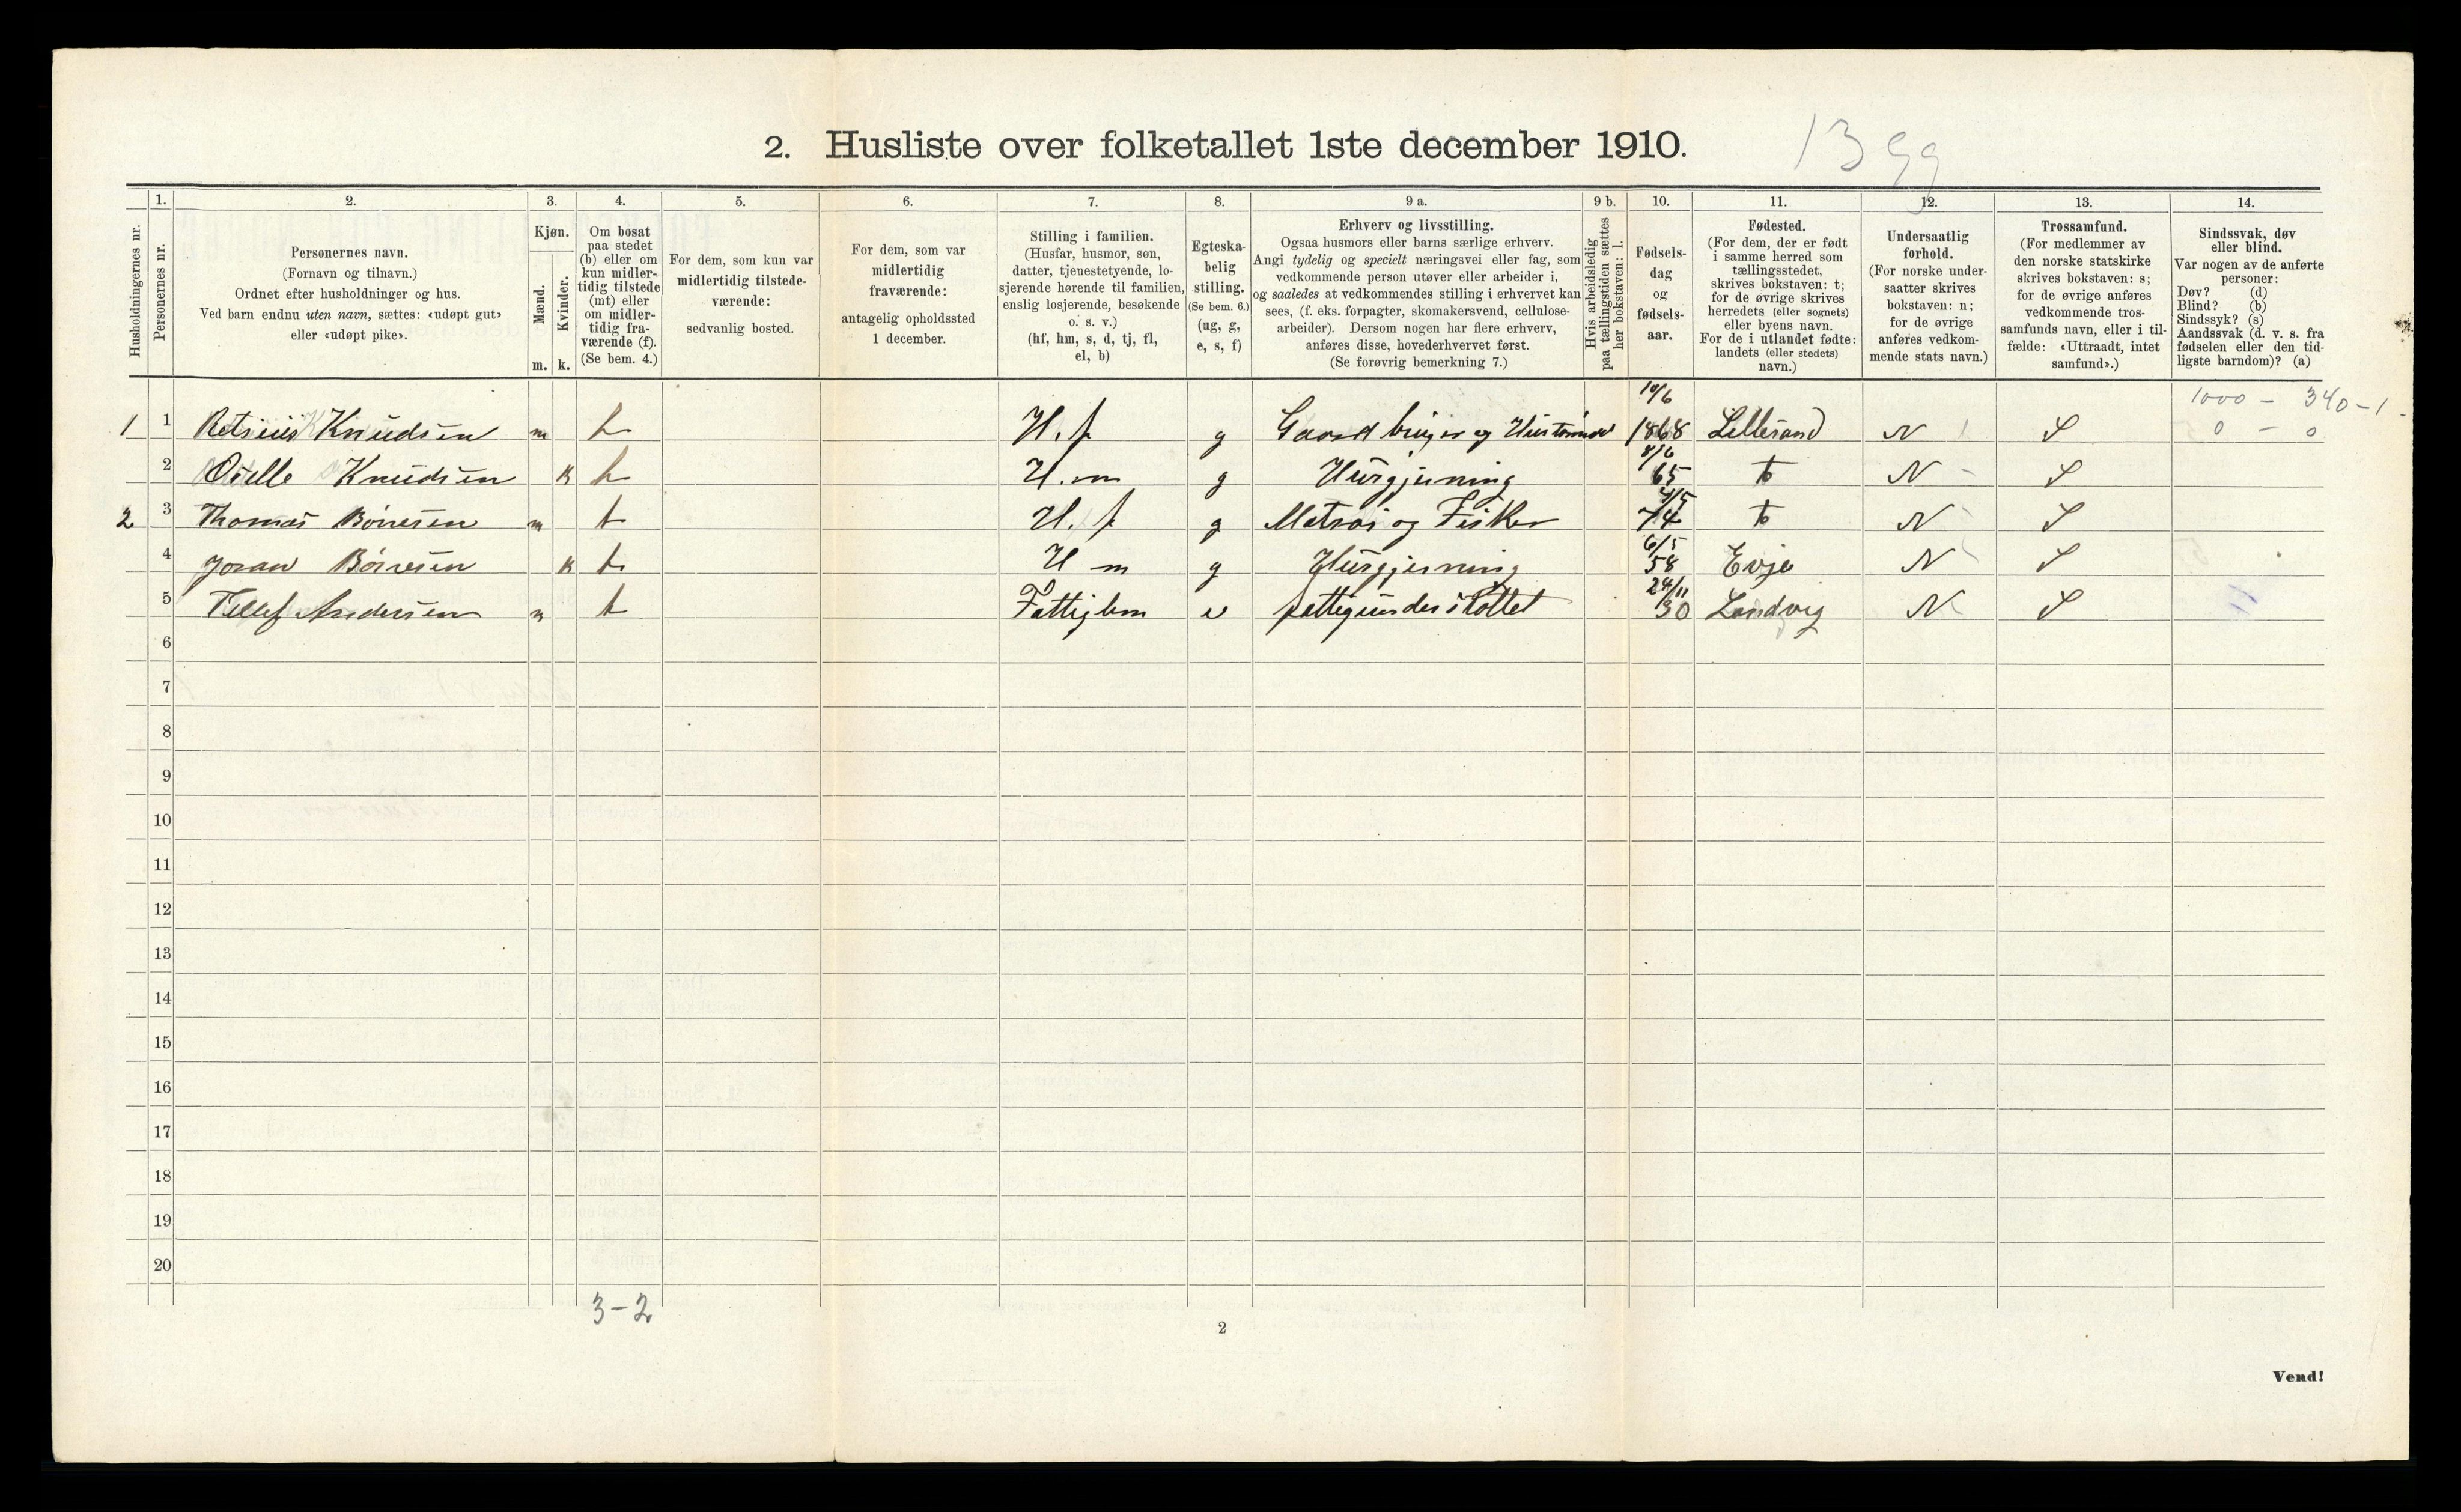 2. Husliste over folketallet 1ste december 1910.
Husholdningernes nr.
1.
Personernes nr.
2.
Personernes navn.
(Fornavn og tilnavn.)
Ordnet efter husholdninger og hus.
Ved barn endnu uten navn, sættes: «udøpt gut»
eller «udøpt pike».
3.
Kjøn.
Mænd.
m.
Kvinder.
k.
4.
Om bosat
paa stedet
(b) eller om
kun midler-
tidig tilstede
(mt) eller
om midler-
tidig fra-
værende (f).
(Se bem. 4.)
5.
For dem, som kun var
midlertidig tilstede-
værende:
sedvanlig bosted.
6.
For dem, som var
midlertidig
fraværende:
antagelig opholdssted
1 december.
7.
Stilling i familien.
(Husfar, husmor, søn,
datter, tjenestetyende, lo-
sjerende hørende til familien,
enslig losjerende, besøkende
o. s. v.)
(hf, hm, s, d, tj, fl,
el, b)
8.
Egteska-
belig
stilling.
(Se bem. 6.)
(ug, g,
e, s, f)
9 a.
Erhverv og livsstilling.
Ogsaa husmors eller barns særlige erhverv.
Angi tydelig og specielt næringsvei eller fag, som
vedkommende person utøver eller arbeider i,
og saaledes at vedkommendes stilling i erhvervet kan
sees, (f. eks. forpagter, skomakersvend, cellulose-
arbeider). Dersom nogen har flere erhverv,
anføres disse, hovederhvervet først.
(Se forøvrig bemerkning 7.)
9 b.
Hvis arbeidsledig
paa tællingstiden sættes
her bokstaven: l.
10.
Fødsels-
dag
og
fødsels-
aar.
11.
Fødested.
(For dem, der er født
i samme herred som
tællingsstedet,
skrives bokstaven: t;
for de øvrige skrives
herredets (eller sognets)
eller byens navn.
For de i utlandet fødte:
landets (eller stedets)
navn.)
12.
Undersaatlig
forhold.
(For norske under-
saatter skrives
bokstaven: n;
for de øvrige
anføres vedkom-
mende stats navn.)
13.
Trossamfund.
(For medlemmer av
den norske statskirke
skrives bokstaven: s;
for de øvrige anføres
vedkommende tros-
samfunds navn, eller i til-
fælde: «Uttraadt, intet
samfund».)
14.
Sindssvak, døv
eller blind.
Var nogen av de anførte
personer:
Døv? (d)
Blind? (b)
Sindssyk? (s)
Aandssvak (d. v. s. fra
fødselen eller den tid-
ligste barndom)? (a)
1000 - 340-1
0 - 0
1 1 Knudsen m H.f g 1868 Lillesand N S
2 Knudsen k H.m g Husgjerning 65 t N S
2 3 Thomas Børresen m H.f g Matros og Fisker 4/5 74 t N S
4 Børresen k H m g Husgjerning 6/5 58 Evje N S
5 Tellef Andersen m Fattiglem e 24/11 30 Landvig N S
6
7
8
9
10
11
12
13
14
15
16
17
18
19
20
3-2
2
Vend!